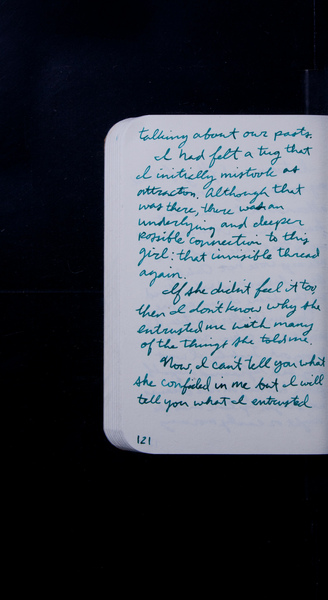 talking about our pasts.
I had felt a tug that
I initially mistook as
attraction. Although that
was there, there was an
underlying and deeper
possible connection to this
girl: that invisible thread
again.
If she didn't feel it too
then I don't know why she
entrusted me with many
of the things she told me.
Now, I can't tell you what
she confided in me but I will
tell you what I entrusted
121